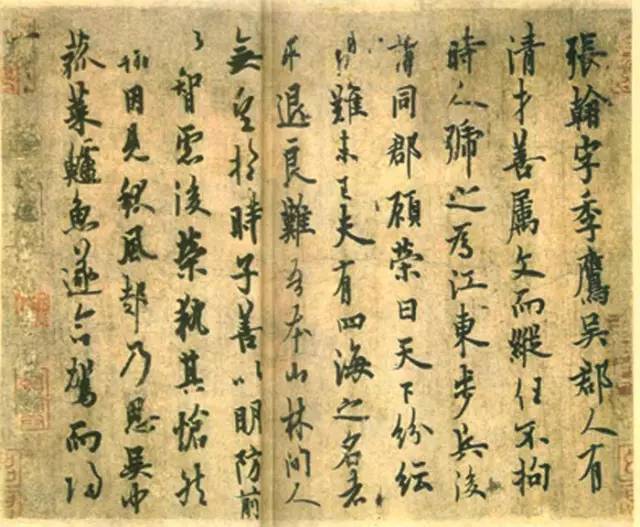 張翰字季鷹吳郡人有
清才善屬文而縱任不拘
時人號之爲江東步兵後
謂同郡顧榮曰天下紛紜
禍難未已夫有四海之名者
求退良難吾本山林間人
無望於時子善以明防前
以智慮後榮執其愴然
翰因見秋風起乃思吳中
菰菜鱸魚遂命駕而歸